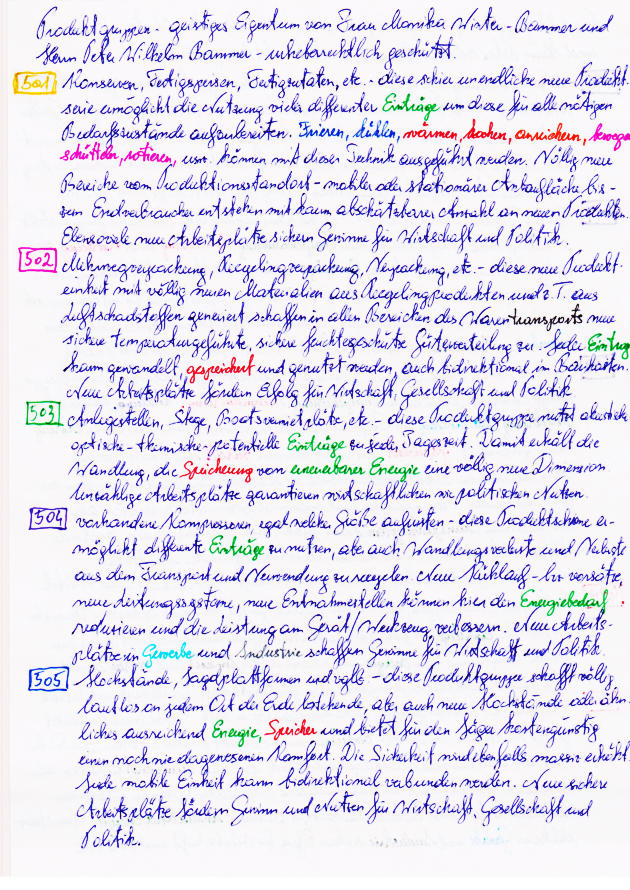 Produktgruppen - geistiges Eigentum von Frau Monika Winter-Bammer und
Herrn Peter Wilhelm Bammer - urheberrechtlich geschützt.
501 Konserven, Fertigspeisen, Fertigzutaten, etc. - diese schier unendliche neue Produkt-
serie ermöglicht die Nutzung vieler differenter Einträge um diese für alle nötigen
Bedarfszustände aufzubereiten. Frieren, kühlen, wärmen, kochen, anreichern, bewegen
schütteln, rotieren, usw. können mit dieser Technik ausgeführt werden. Völlig neue
Bereiche vom Produktionsstandort - mobiler oder stationärer Anbaufläche bis -
zum Endverbraucher entstehen mit kaum abschätzbarer Anzahl an neuen Produkten.
Ebensoviele neue Arbeitsplätze sichern Gewinne für Wirtschaft und Politik.
502 Mehrwegverpackung, Recyclingverpackung, Verpackung, etc. - diese neue Produkt-
einheit mit völlig neuen Materialien aus Recyclingprodukten und z.T. aus
Luftschadstoffen generiert schaffen in allen Bereichen des Warentransports neue
sichere temperaturgeführte, sichere feuchtegeschützte Güterverteilung zu. Jeder Eintrag
kann gewandelt, gespeichert und genutzt werden, auch bidirektional im Baukasten.
Neue Arbeitsplätze fördern Erfolg für Wirtschaft, Gesellschaft und Politik
503 Anlegestellen, Stege, Bootsvermietplätze, etc. - diese Produktgruppe nutzt akustische
optische - thermische - potentielle Einträge zu jeder Tageszeit. Damit erhält die
Wandlung, die Speicherung von erneuerbarer Energie eine völlig neue Dimension
Unzählige Arbeitsplätze garantieren wirtschaftlichen wie politischen Nutzen.
504 vorhandene Kompressoren, egal welcher Größe aufrüsten - diese Produktschiene er-
möglicht differente Einträge zu nutzen, aber auch Wandlungsverluste und Verluste
aus dem Transport und Verwendung zu recyceln. Neue Rücklauf - bzw. versätze,
neue Leitungssysteme, neue Entnahmestellen können hier den Energiebedarf
reduzieren und die Leistung am Gerät/Werkzeug verbessern. Neue Arbeits-
plätze in Gewerbe und Industrie schaffen Gewinne für Wirtschaft und Politik.
505 Hochstände, Jagdplattformen und vglb. - diese Produktgruppe schafft völlig
lautlos an jedem Ort der Erde bestehende, aber auch neue Hochstände oder ähn-
liches ausreichend Energie, Speicher und bietet für den Jäger kostengünstig
einen noch nie dagewesenen Komfort. Die Sicherheit wird ebenfalls massiv erhöht.
Jede mobile Einheit kann bidirektional verbunden werden. Neue sichere
Arbeitsplätze fördern Gewinn und Nutzen für Wirtschaft, Gesellschaft und
Politik.